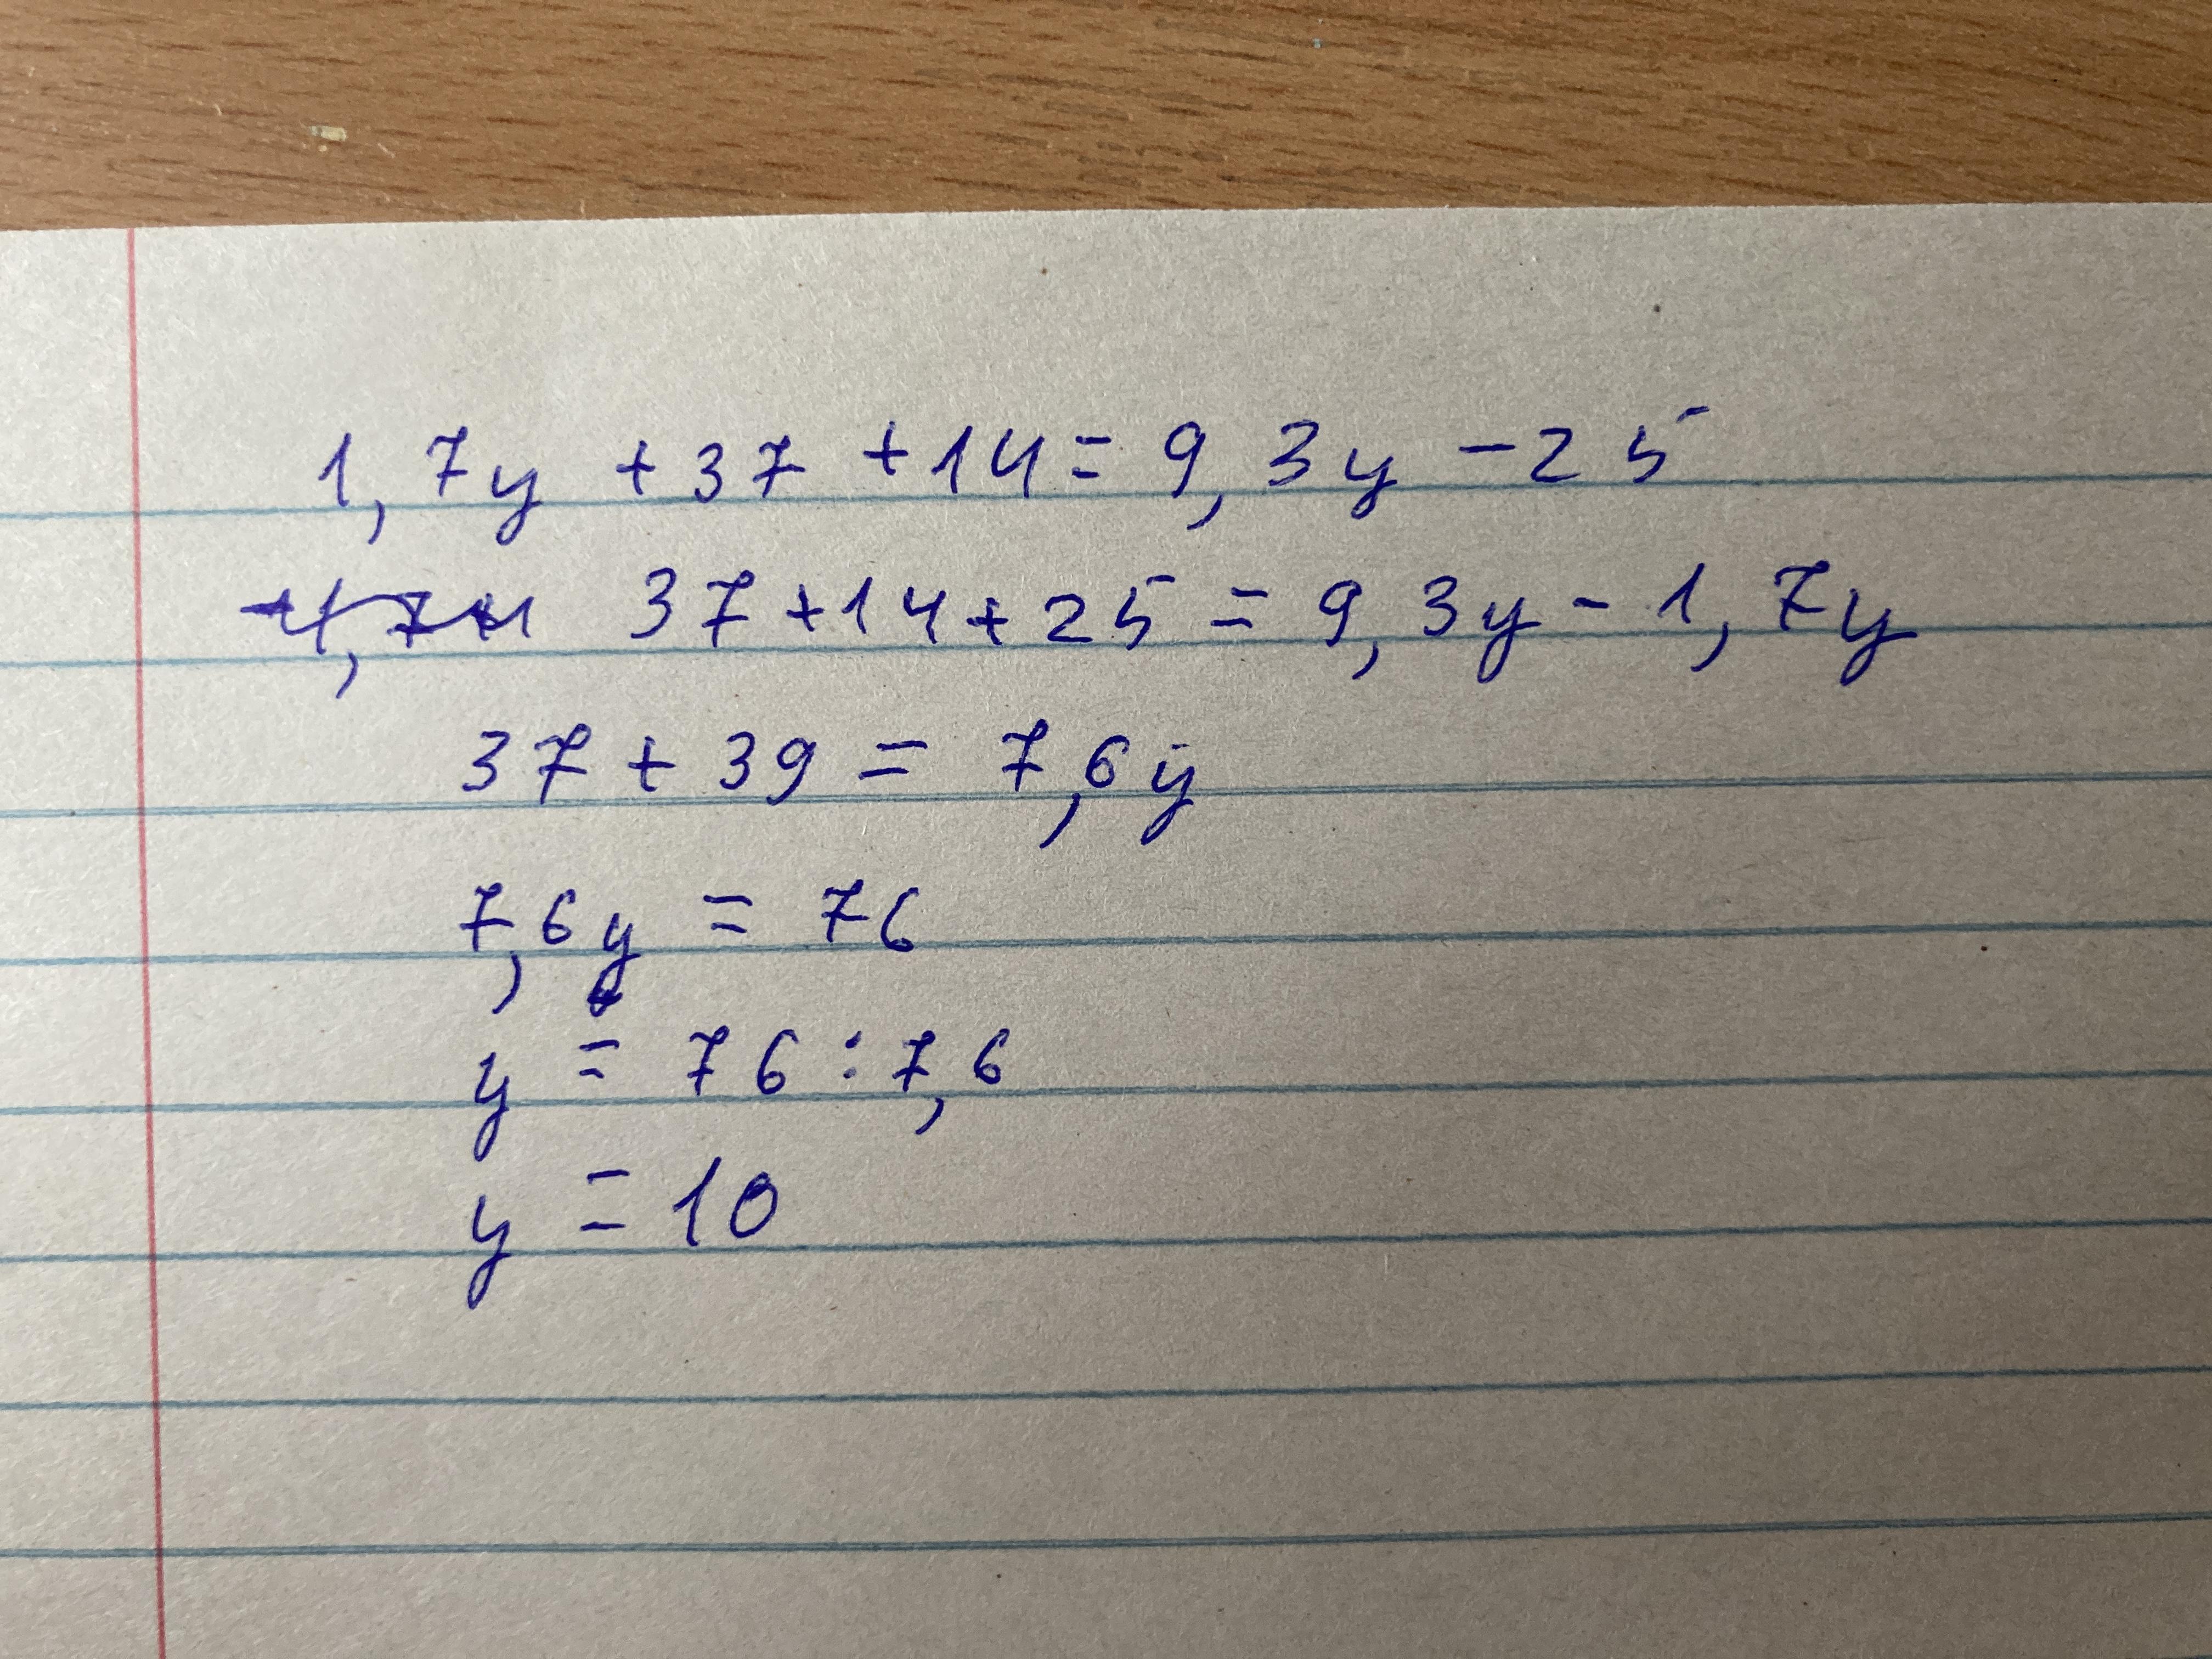 1,7y + 37 + 14 = 9,3y - 25
37 + 14 + 25 = 9,3y - 1,7y
37 + 39 = 7,6y
7,6y = 76
y = 76 : 7,6
y = 10